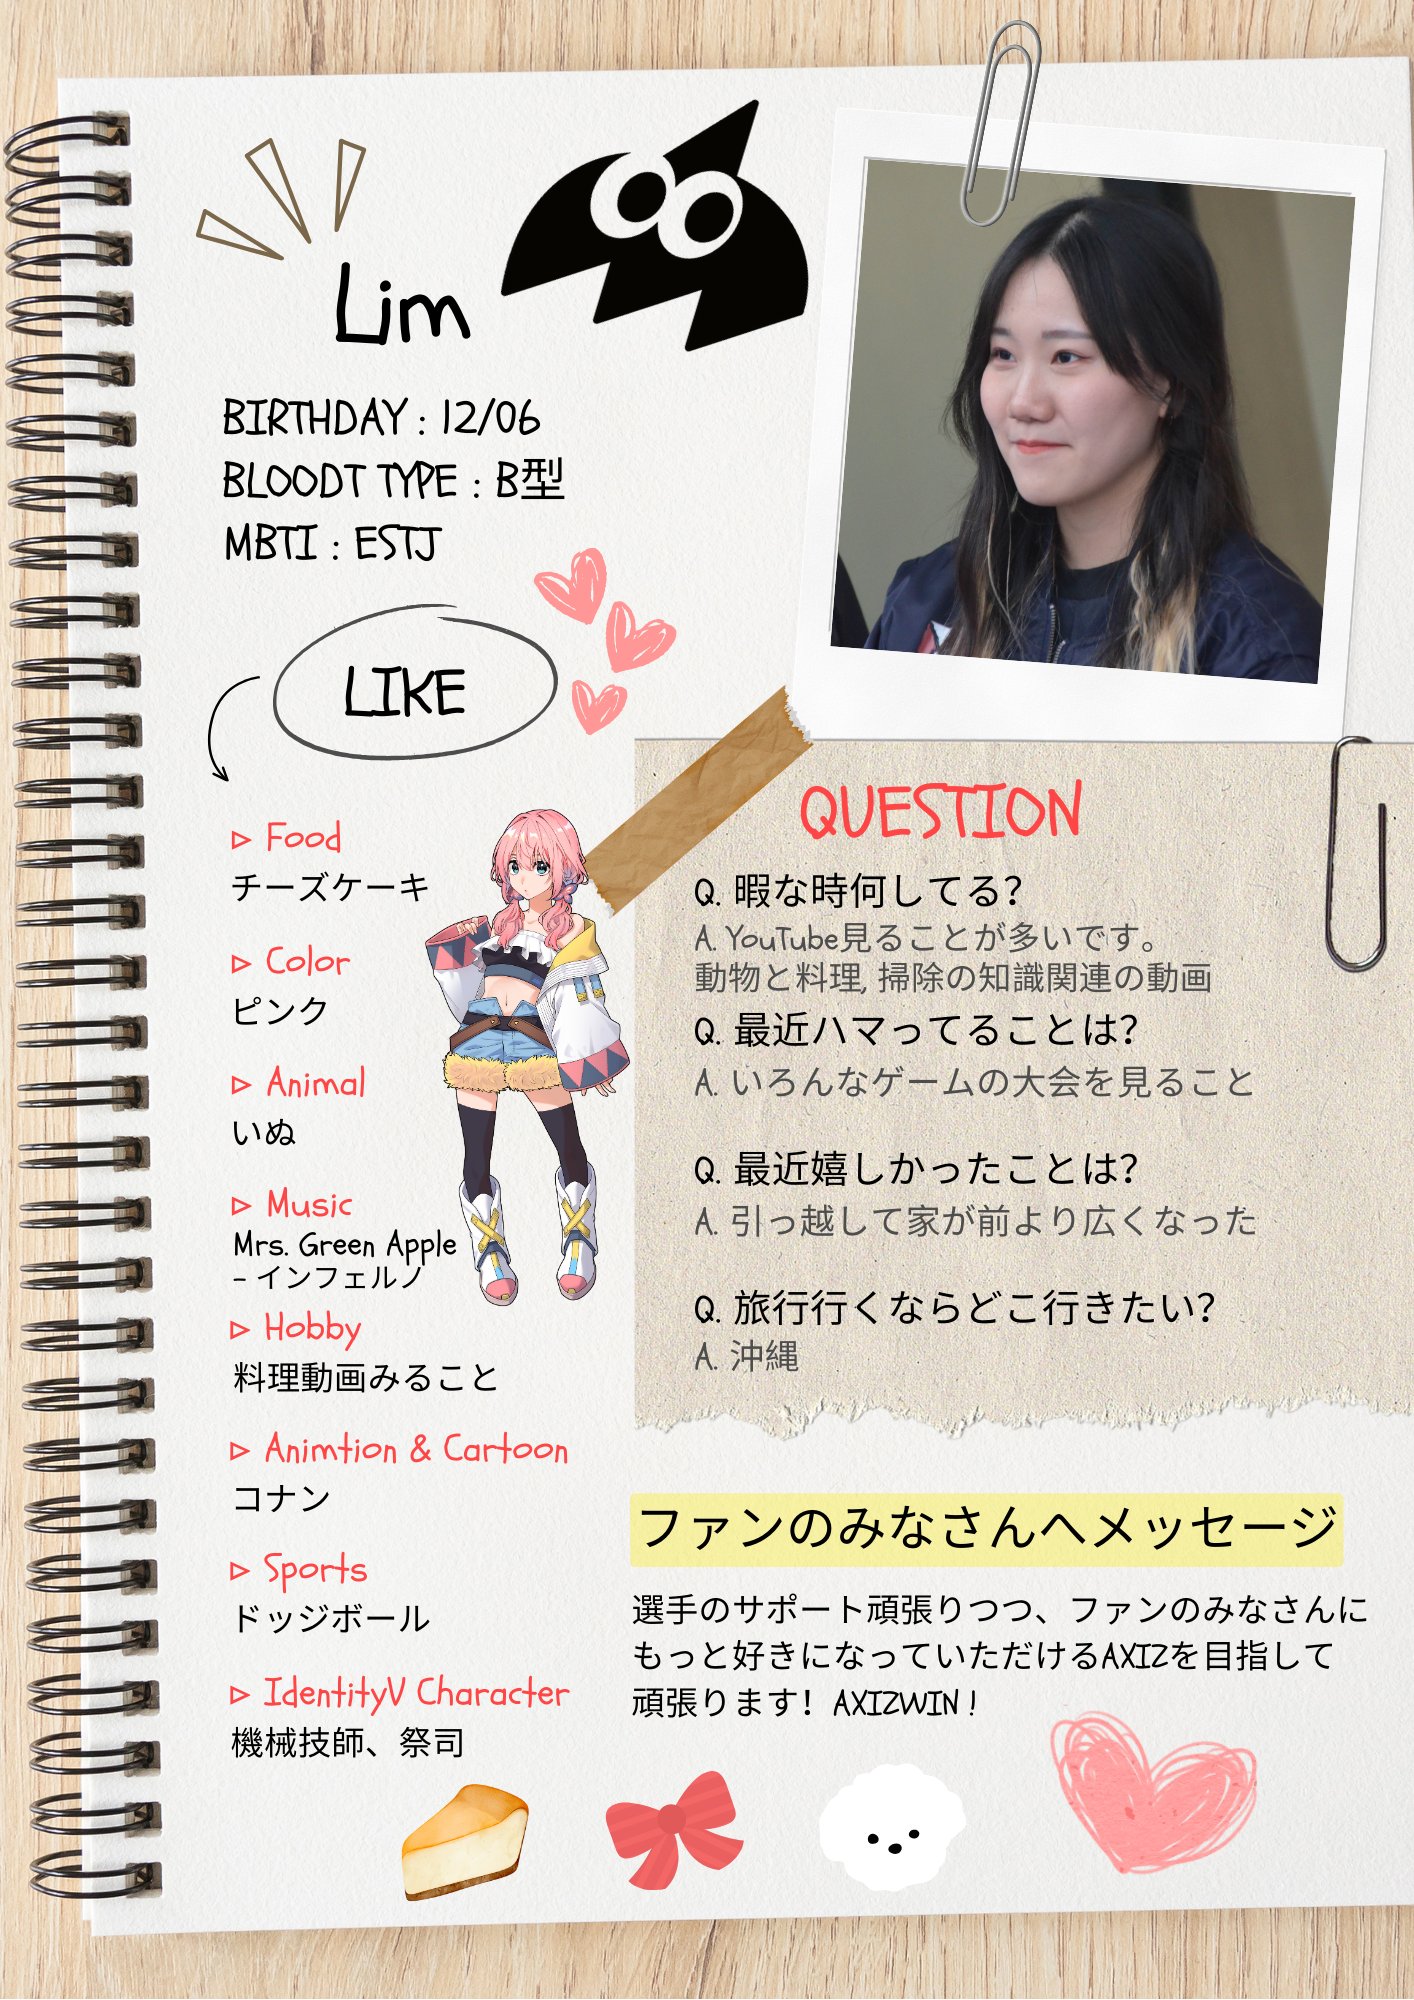 Lim
BIRTHDAY : 12/06
BLOODT TYPE : B型
MBTI : ESTJ
LIKE
▷ Food
チーズケーキ
▷ Color
ピンク
▷ Animal
いぬ
▷ Music
Mrs. Green Apple
- インフェルノ
▷ Hobby
料理動画みること
▷ Animtion & Cartoon
コナン
▷ Sports
ドッジボール
▷ IdentityV Character
機械技師、祭司
QUESTION
Q. 暇な時何してる?
A. YouTube見ることが多いです。
動物と料理, 掃除の知識関連の動画
Q. 最近ハマってることは?
A. いろんなゲームの大会を見ること
Q. 最近嬉しかったことは?
A. 引っ越して家が前より広くなった
Q. 旅行行くならどこ行きたい?
A. 沖縄
ファンのみなさんへメッセージ
選手のサポート頑張りつつ、ファンのみなさんに
もっと好きになっていただけるAXIZを目指して
頑張ります! AXIZWIN !